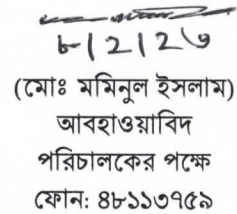 ৮।২।২৩
(মোঃ মমিনুল ইসলাম)
আবহাওয়াবিদ
পরিচালকের পক্ষে
ফোন: ৪৮১১৩৭৫৯